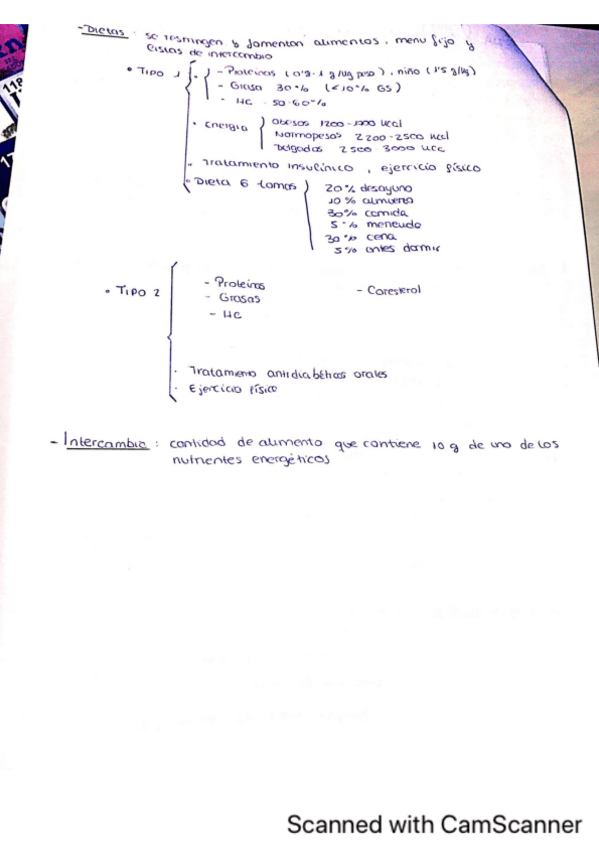 - Dietas : se restringen y fomentan alimentos, menu fijo y
listas de intercambio
• Tipo 1
- Proteínas (0'9-1 g/kg peso), niño (1'5 g/kg)
- Grasa 30% (<10% GS)
- HC 50-60%
• Energía
Obesos 1200- kcal
Normopesos 2200-2500 kcal
Delgados 2500-3000 kcal
• Tratamiento insulínico, ejercicio físico
• Dieta 6 tomas
20% desayuno
10% almuerzo
30% comida
5% merienda
30% cena
5% antes dormir
• Tipo 2
- Proteínas
- Grasas
- HC
- Coresterol
• Tratamiento antidiabéticos orales
• Ejercicio físico
- Intercambio : cantidad de alimento que contiene 10 g de uno de los
nutrientes energéticos
118
Scanned with CamScanner